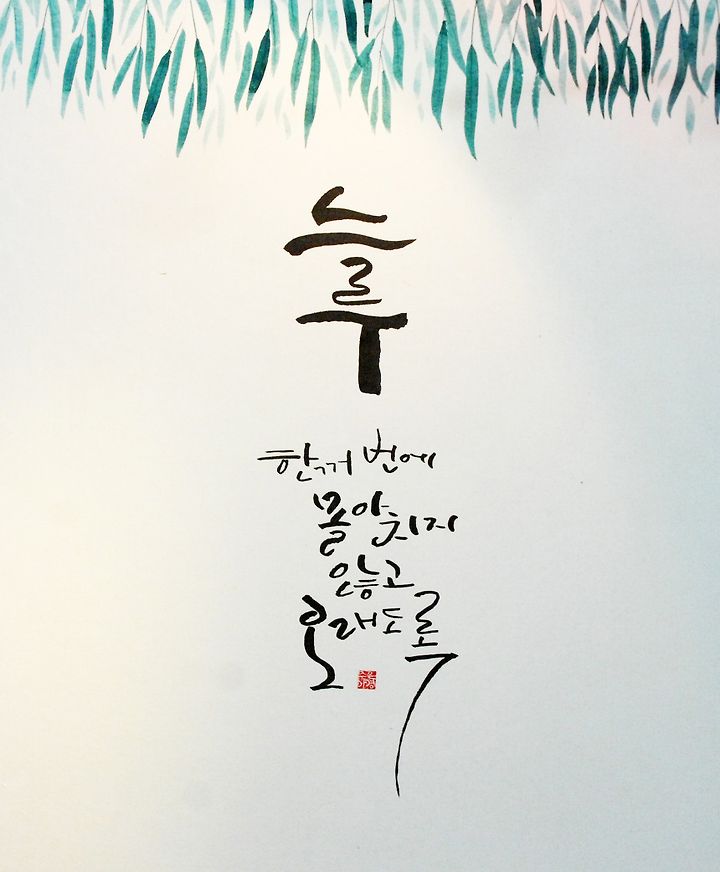 느루
한꺼번에
몰아치지
않고
오래도록